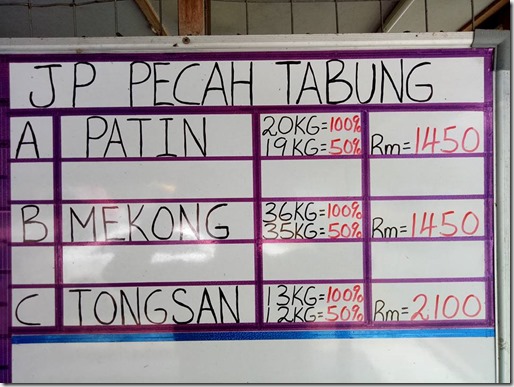 JP PECAH TABUNG
A PATIN 20KG=100% Rm=1450
19KG=50%
B MEKONG 36KG=100% Rm=1450
35KG=50%
C TONGSAN 13KG=100% Rm=2100
12KG=50%